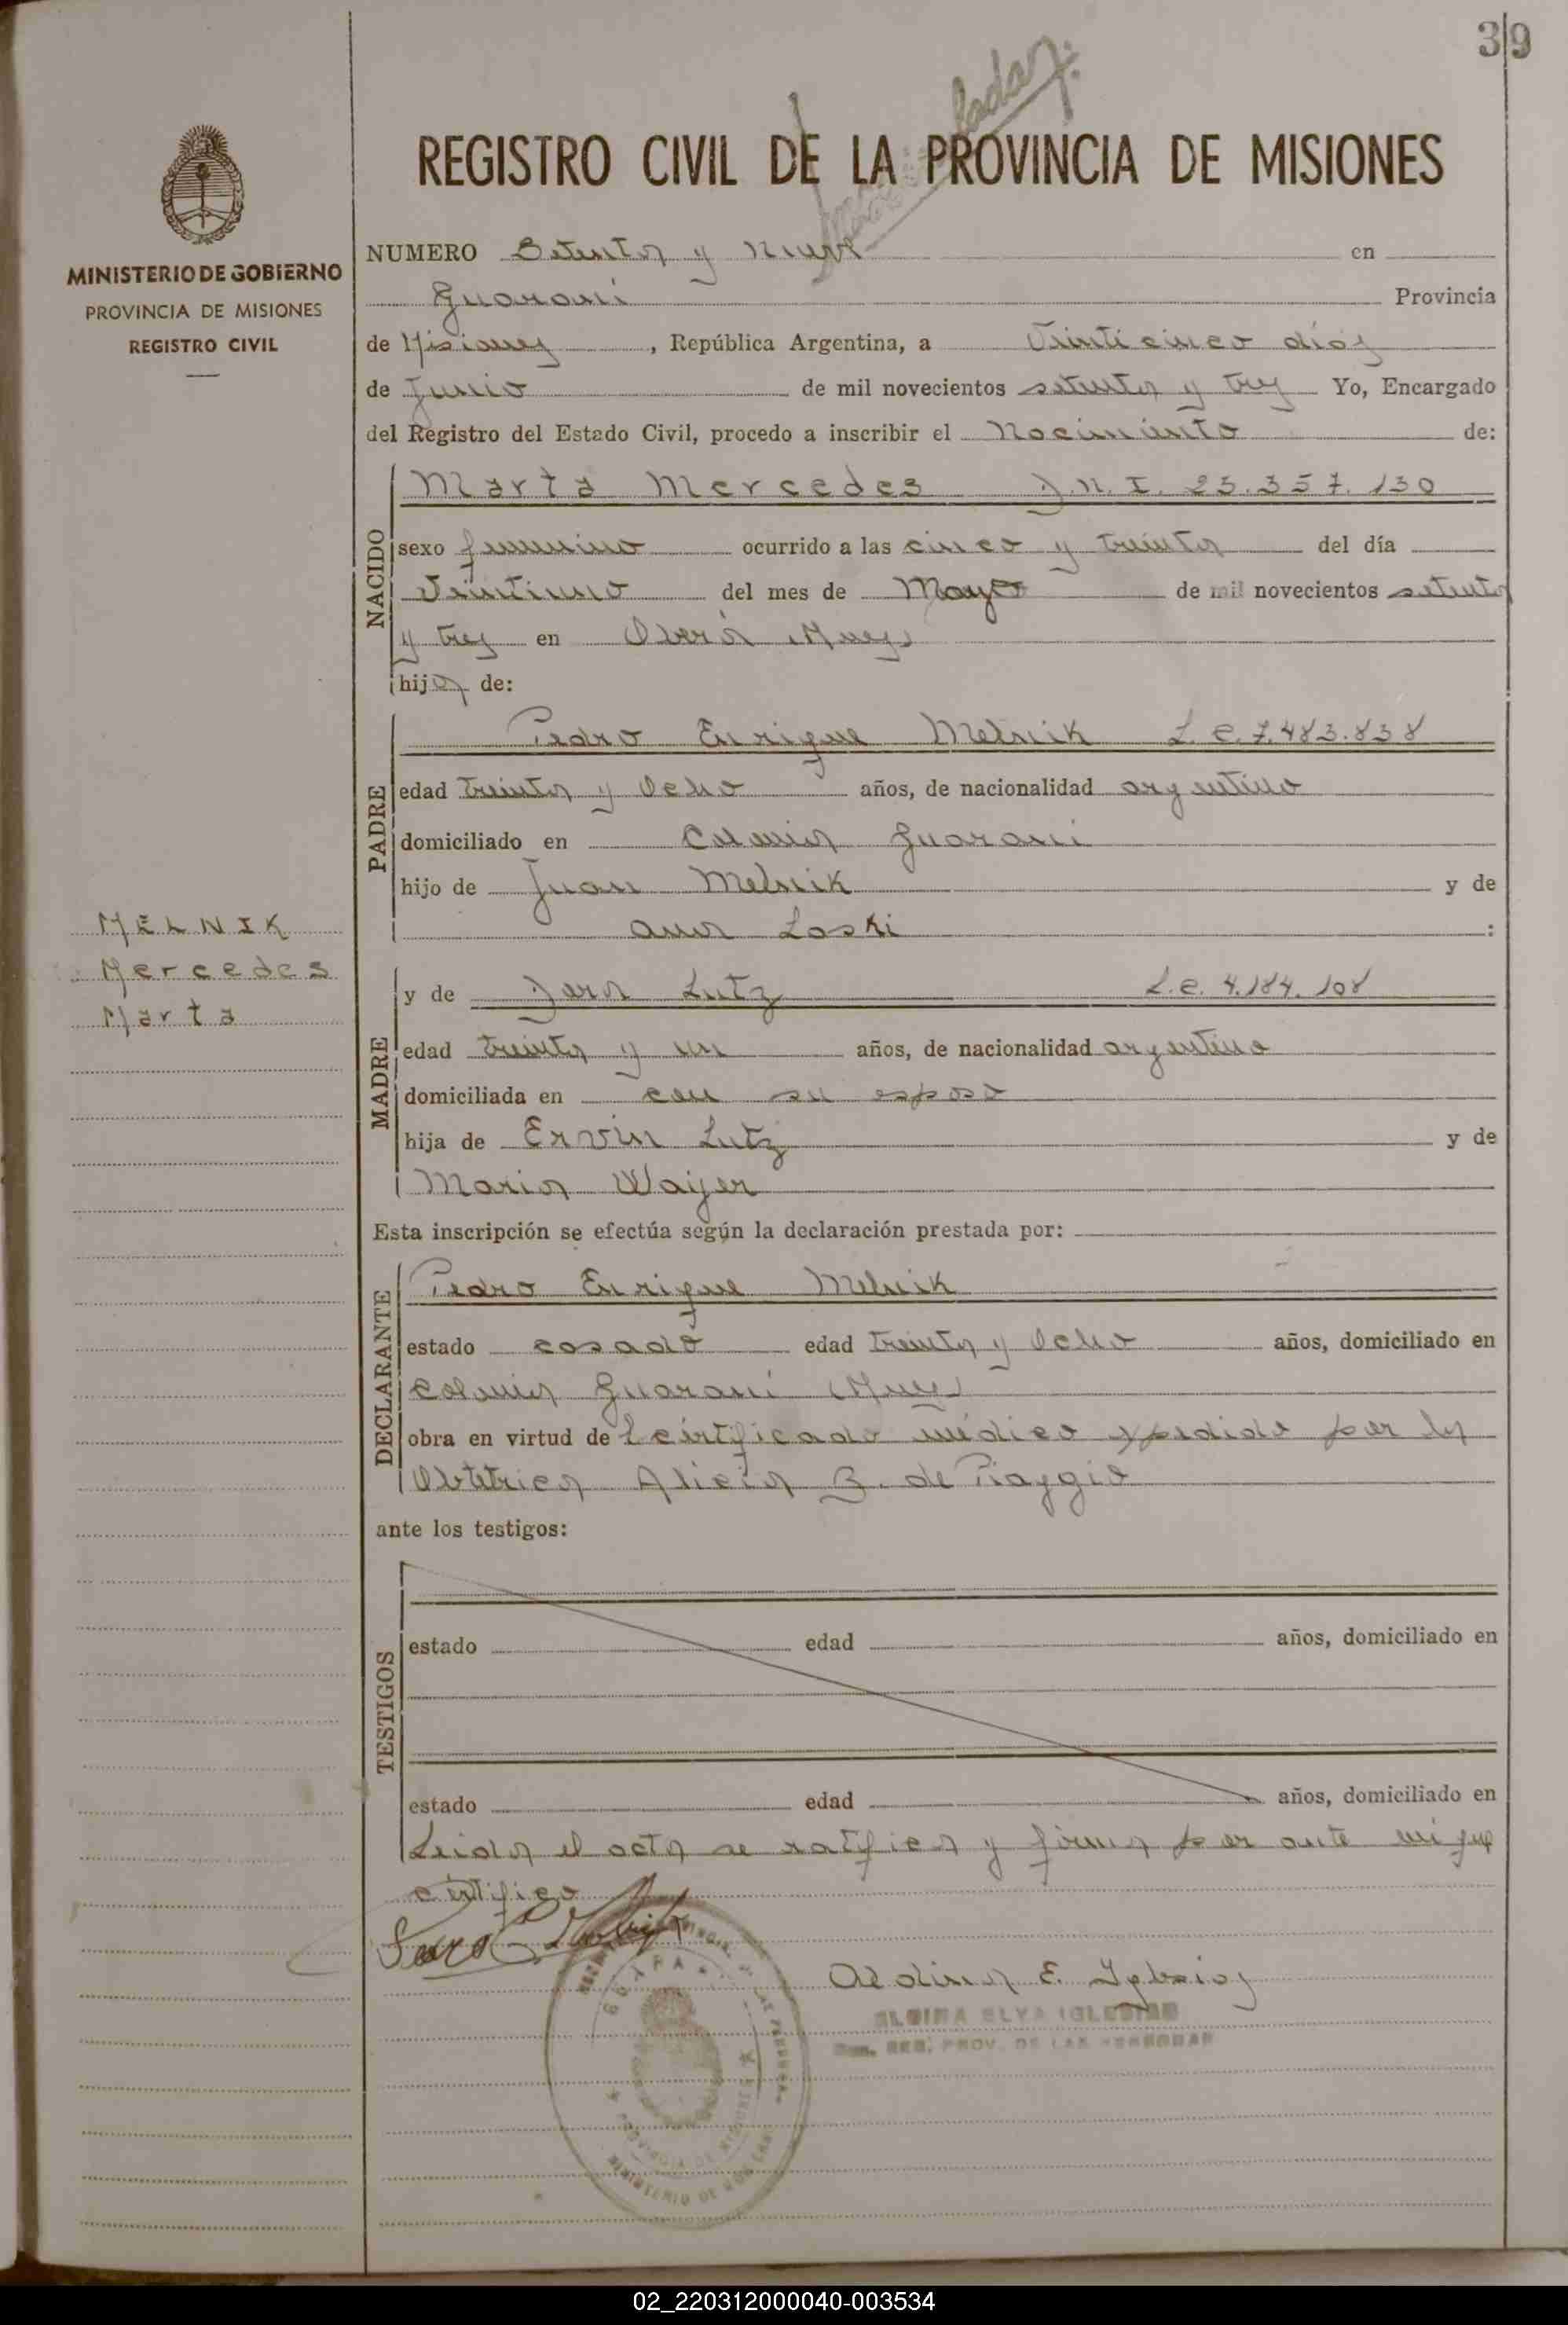 39
REGISTRO CIVIL DE LA PROVINCIA DE MISIONES
MINISTERIO DE GOBIERNO
PROVINCIA DE MISIONES
REGISTRO CIVIL
NUMERO Setenta y nueve en
Guaraní Provincia
de Misiones, República Argentina, a Veinticinco días
de Junio de mil novecientos setenta y tres Yo, Encargado
del Registro del Estado Civil, procedo a inscribir el Nacimiento de:
NACIDO
Marta Mercedes D.N.I. 23.357.130
sexo femenino ocurrido a las cinco y treinta del día
Veintiuno del mes de Mayo de mil novecientos setenta
y tres en Oberá (Mnes)
hija de:
PADRE
Pedro Enrique Melnik L.E. 7.483.838
edad treinta y Ocho años, de nacionalidad argentino
domiciliado en Colonia Guaraní
hijo de Juan Melnik y de
Ana Loski :
MELNIK
Mercedes
Marta
MADRE
y de Dera Lutz L.C. 4.184.108
edad treinta y un años, de nacionalidad argentina
domiciliada en con su esposo
hija de Ervin Lutz y de
Maria Waijer
Esta inscripción se efectúa según la declaración prestada por:
DECLARANTE
Pedro Enrique Melnik
estado casado edad treinta y Ocho años, domiciliado en
Colonia Guaraní (Mnes)
obra en virtud de certificado médico expedido por la
Obtétrica Alicia B. de Piaggio
ante los testigos:
TESTIGOS
estado edad años, domiciliado en
estado edad años, domiciliado en
Leida el acta se ratifica y firma por ante mi que
certifico
Aldina E. Iglesias
ELYA IGLESIAS
REG. PROV. DE LAS PERSONAS
PROVINCIA DE MISIONES
MINISTERIO DE
02_220312000040-003534